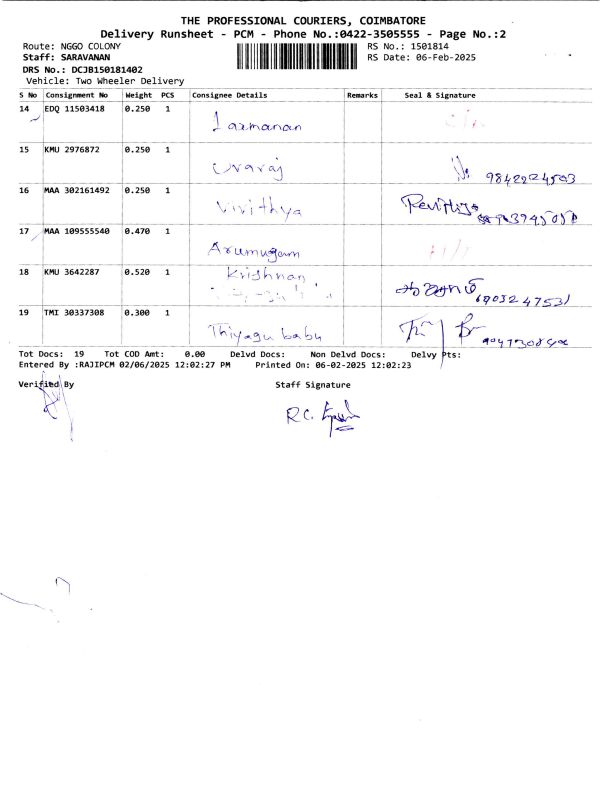 THE PROFESSIONAL COURIERS, COIMBATORE
Delivery Runsheet - PCM - Phone No.:0422-3505555 - Page No.:2
Route: NGGO COLONY RS No.: 1501814
Staff: SARAVANAN RS Date: 06-Feb-2025
DRS No.: DCJB150181402
Vehicle: Two Wheeler Delivery
S No Consignment No Weight PCS Consignee Details Remarks Seal & Signature
14 EDQ 11503418 0.250 1
Laxmanan
15 KMU 2976872 0.250 1
Uvaraj
9842224503
16 MAA 302161492 0.250 1
Vivithya
17 MAA 109555540 0.470 1
Arumugam
18 KMU 3642287 0.520 1 Krishnan
19 TMI 30337308 0.300 1
Thiyagu babu
Tot Docs: 19 Tot COD Amt: 0.00 Delvd Docs: Non Delvd Docs: Delvy Pts:
Entered By :RAJIPCM 02/06/2025 12:02:27 PM Printed On: 06-02-2025 12:02:23
Verified By Staff Signature
R.C.